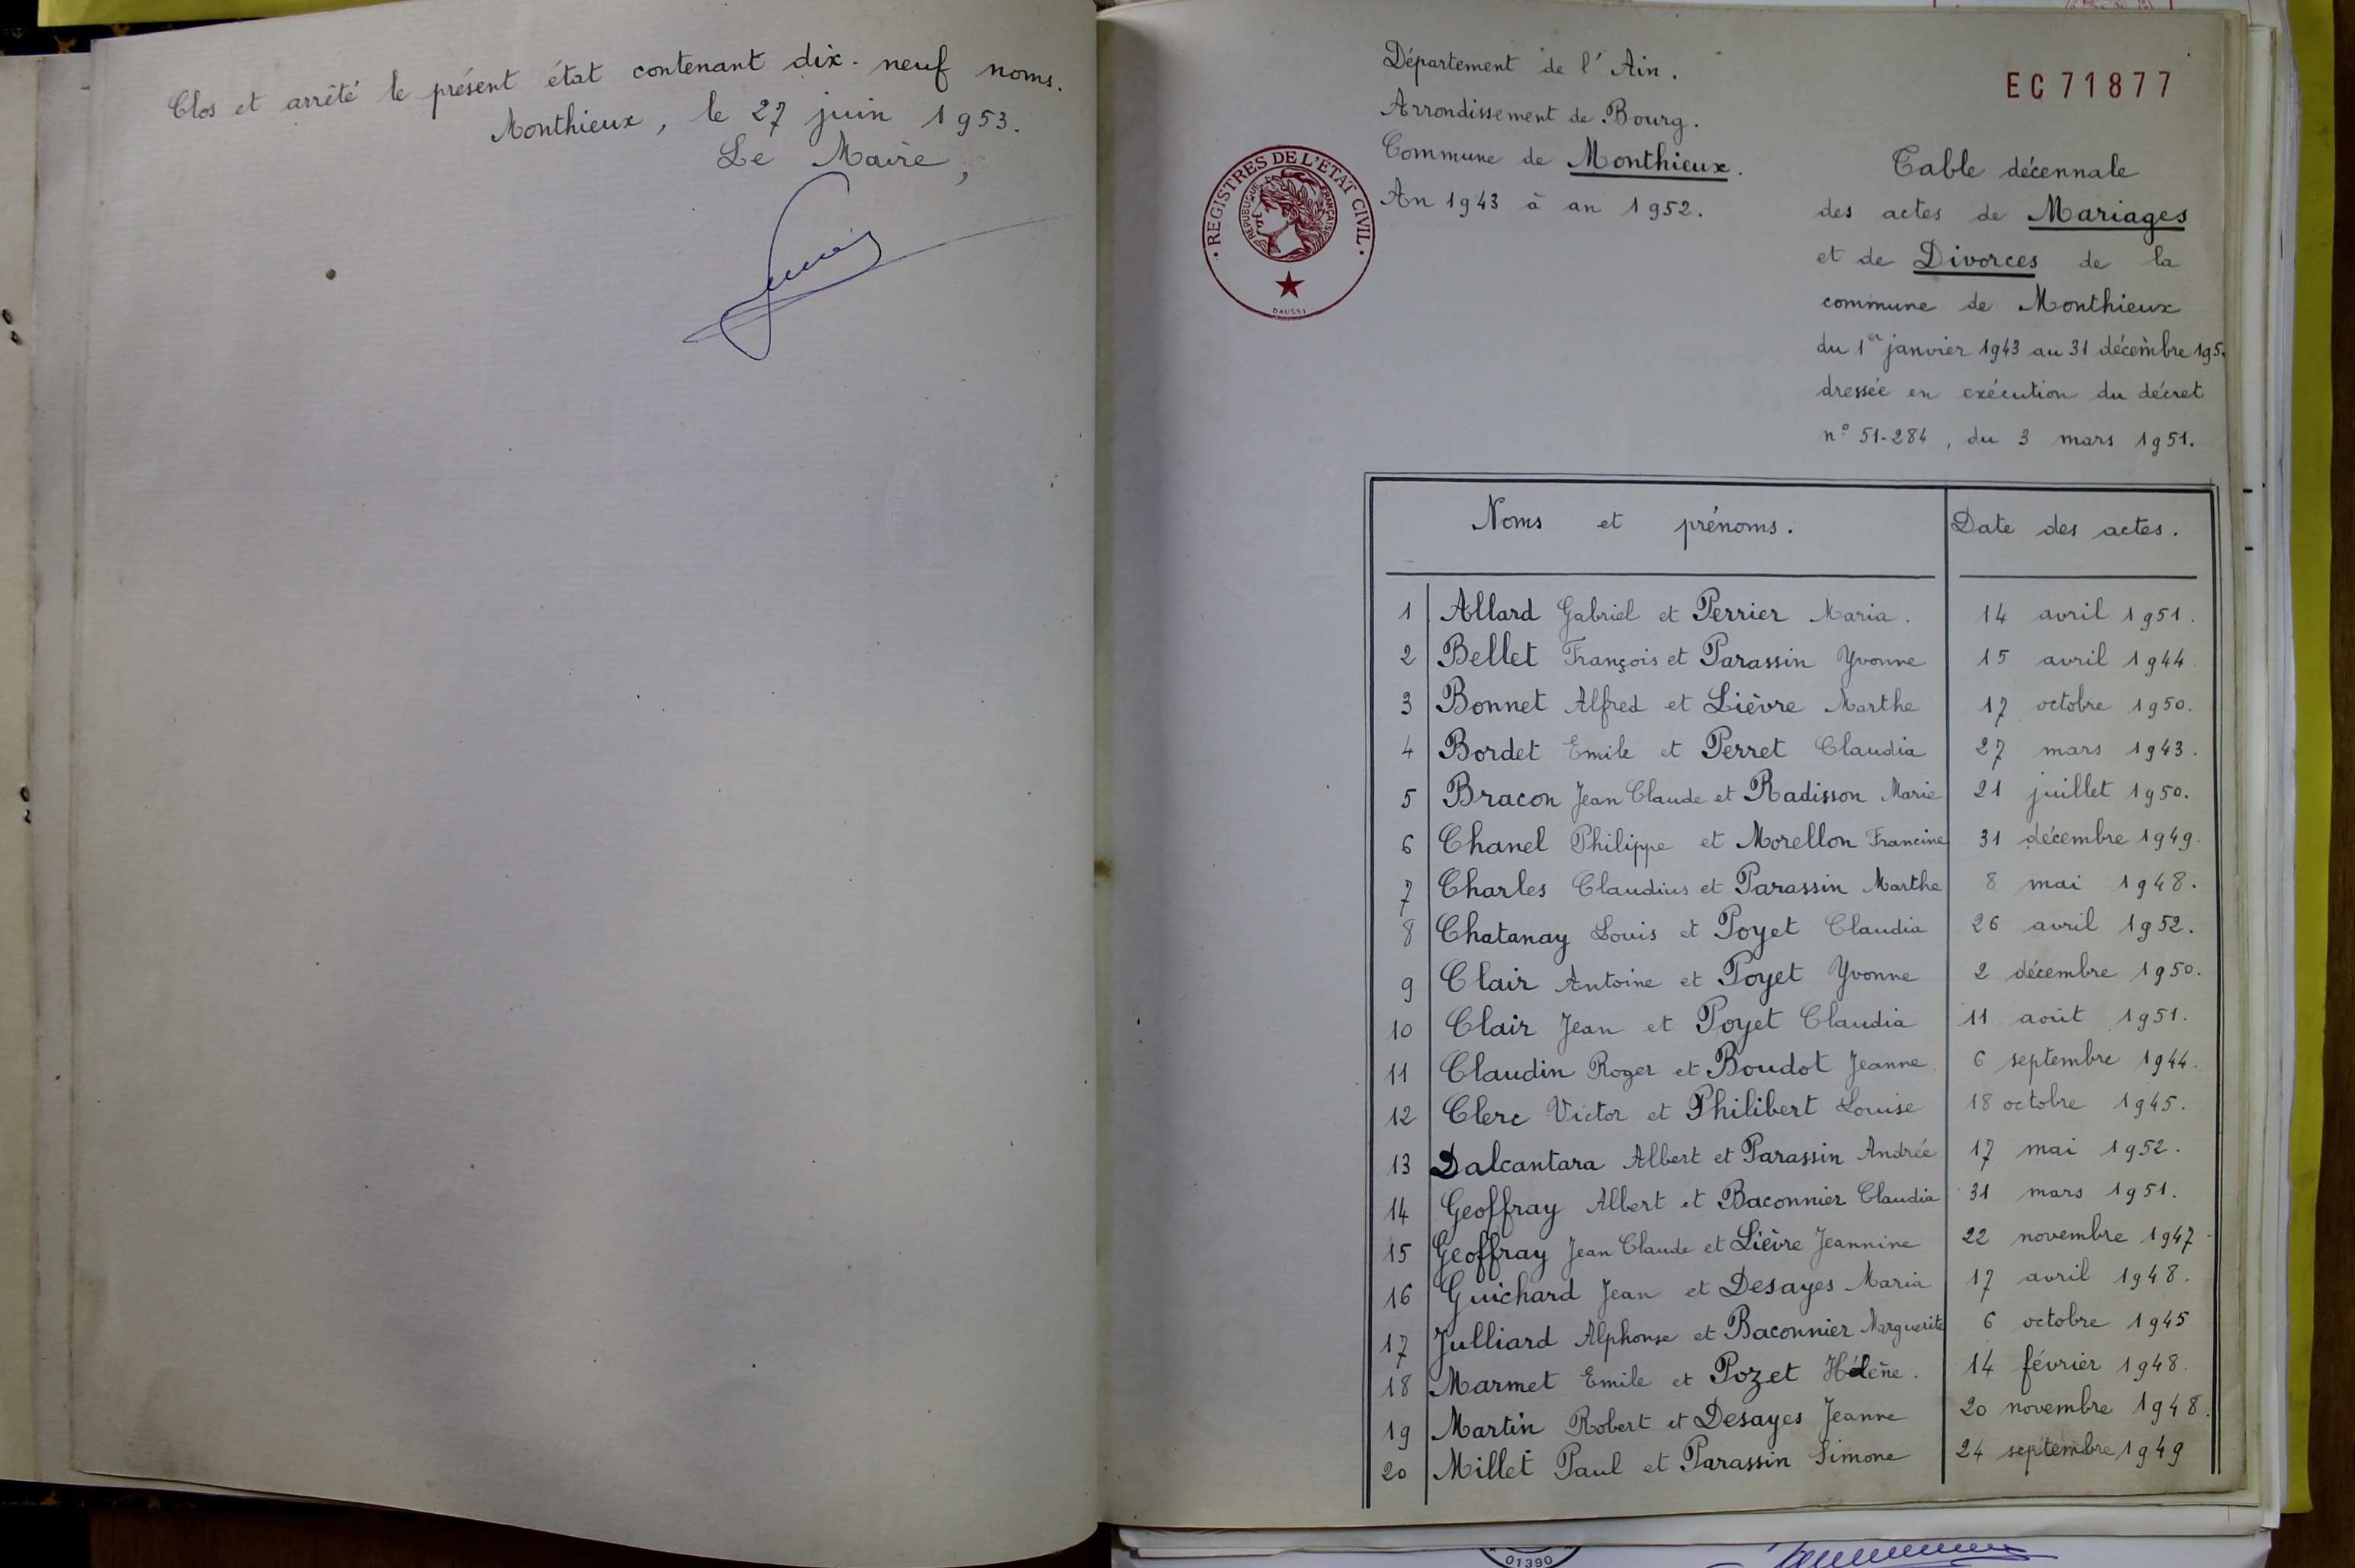 Clos et arrêté le présent état contenant dix-neuf noms.
Monthieux, le 27 juin 1953.
Le Maire,
Département de l'Ain.
Arrondissement de Bourg.
Commune de Monthieux.
An 1943 à an 1952.
REGISTRES DE L'ETAT CIVIL
REPUBLIQUE FRANÇAISE
EC 71877
Table décennale
des actes de Mariages
et de Divorces de la
commune de Monthieux
du 1er janvier 1943 au 31 décembre 195
dressée en exécution du décret
n° 51-284, du 3 mars 1951.
Noms et prénoms. Date des actes.
1 Allard Gabriel et Perrier Maria. 14 avril 1951.
2 Bellet François et Parassin Yvonne 15 avril 1944
3 Bonnet Alfred et Lièvre Marthe 17 octobre 1950.
4 Bordet Emile et Perret Claudia 27 mars 1943.
5 Bracon Jean Claude et Radisson Marie 21 juillet 1950.
6 Chanel Philippe et Morellon Francine 31 décembre 1949.
7 Charles Claudius et Parassin Marthe 8 mai 1948.
8 Chatanay Louis et Poyet Claudia 26 avril 1952.
9 Clair Antoine et Poyet Yvonne 2 décembre 1950.
10 Clair Jean et Poyet Claudia 11 août 1951.
11 Claudin Roger et Boudot Jeanne 6 septembre 1944.
12 Clerc Victor et Philibert Louise 18 octobre 1945.
13 Dalcantara Albert et Parassin Andrée 17 mai 1952.
14 Geoffray Albert et Baconnier Claudia 31 mars 1951.
15 Geoffray Jean Claude et Lièvre Jeannine 22 novembre 1947.
16 Guichard Jean et Desayes Maria 17 avril 1948.
17 Julliard Alphonse et Baconnier Marguerite 6 octobre 1945
18 Marmet Emile et Pozet Hélène. 14 février 1948.
19 Martin Robert et Desayes Jeanne 20 novembre 1948.
20 Millet Paul et Parassin Simone 24 septembre 1949
01390